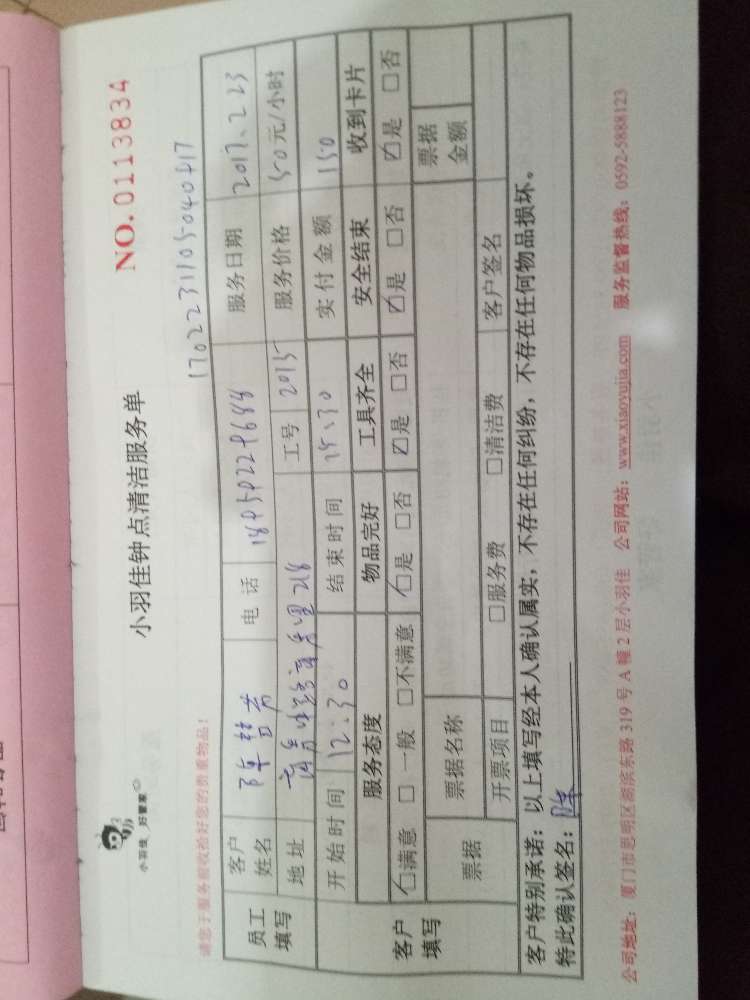 小羽佳 好管家
小羽佳钟点清洁服务单
NO.0113834
请您于服务前收拾好您的贵重物品！
1702231105040417
员工填写 客户姓名 电话 服务日期 2017.2.23
地址 218 工号 2015 服务价格 50元/小时
开始时间 12:30 结束时间 15:30 实付金额 150
客户填写 服务态度 物品完好 工具齐全 安全结束 收到卡片
☑满意 □一般 □不满意 ☑是 □否 ☑是 □否 ☑是 □否 ☑是 □否
票据 票据名称 票据金额
开票项目 □服务费 □清洁费 客户签名
客户特别承诺：以上填写经本人确认属实，不存在任何纠纷，不存在任何物品损坏。
特此确认签名：陈
公司地址：厦门市思明区湖滨东路319号A幢2层小羽佳 公司网站：www.xiaoyujia.com 服务监督热线：0592-5888123